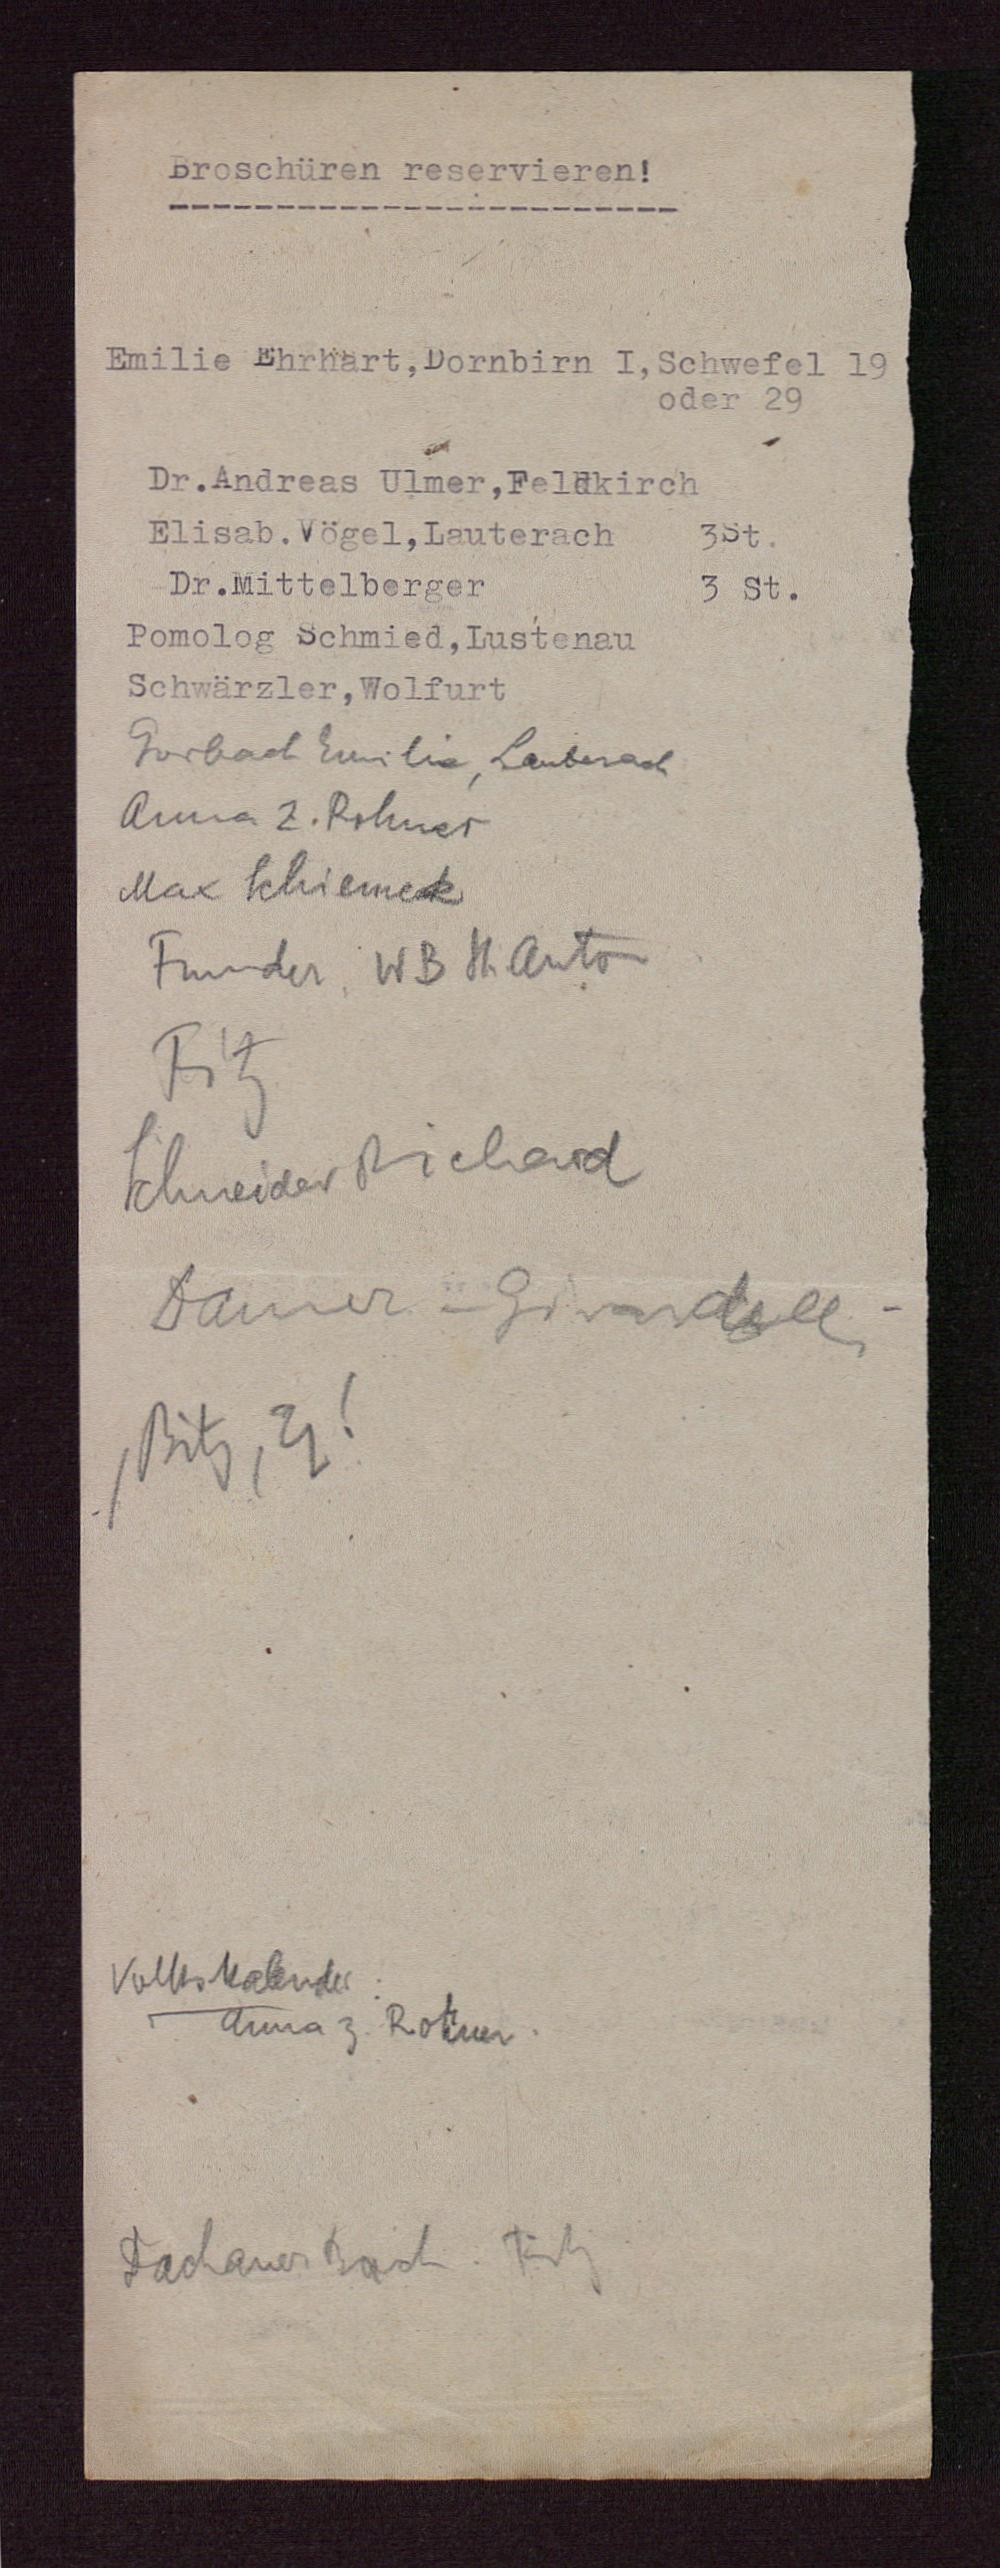 Broschüren reservieren!
Emilie Ehrhart, Dornbirn I, Schwefel 19
oder 29
Dr. Andreas Ulmer, Feldkirch
Elisab. Vögel, Lauterach 3St.
Dr. Mittelberger 3 St.
Pomolog Schmied, Lustenau
Schwärzler, Wolfurt
Gorbach Emilie, Lauterach
Anna z. Rohner
Max Schiemek
Funder, WB St. Anton
Fitz
Schneider Richard
Damer - Girardelli
Bitz,
Volkskalender:
Anna z. Rohner.
Dachauer Fitz